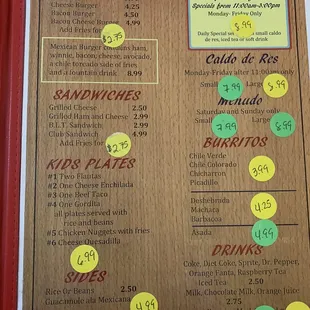 Cheese Burger 4.25
Bacon Burger 4.50
Bacon Cheese Burger
Add Fries for $2.75
Mexican Burger contains ham,
winnie, bacon, cheese, avocado,
a chile toreado side of fries
and a fountain drink 8.99
SANDWICHES
Grilled Cheese 2.50
Grilled Ham and Cheese 2.99
B.L.T. Sandwich 2.99
Club Sandwich 4.99
Add Fries for $2.75
KIDS PLATES
#1 Two Flautas
#2 One Cheese Enchilada
#3 One Beef Taco
#4 One Gordita
all plates served with
rice and beans
#5 Chicken Nuggets with fries
#6 Cheese Quesadilla
6.99
SIDES
Rice Or Beans 2.50
Guacamole ala Mexicana
4.99
Specials from 11:00am-3:00pm
Monday-Friday Only
8.99
Daily Special served with small caldo
de res, iced tea or soft drink
Caldo de Res
Monday-Friday after 11:00am only
Small 7.99 Large 8.99
Menudo
Saturday and Sunday only
Small 7.99 Large 8.99
BURRITOS
Chile Verde
Chile Colorado
Chicharron 3.99
Picadillo
Deshebrada
Machaca 4.25
Barbacoa
Asada 4.99
DRINKS
Coke, Diet Coke, Sprite, Dr. Pepper,
Orange Fanta, Raspberry Tea
Iced Tea 2.50
Milk, Chocolate Milk, Orange Juice
2.75